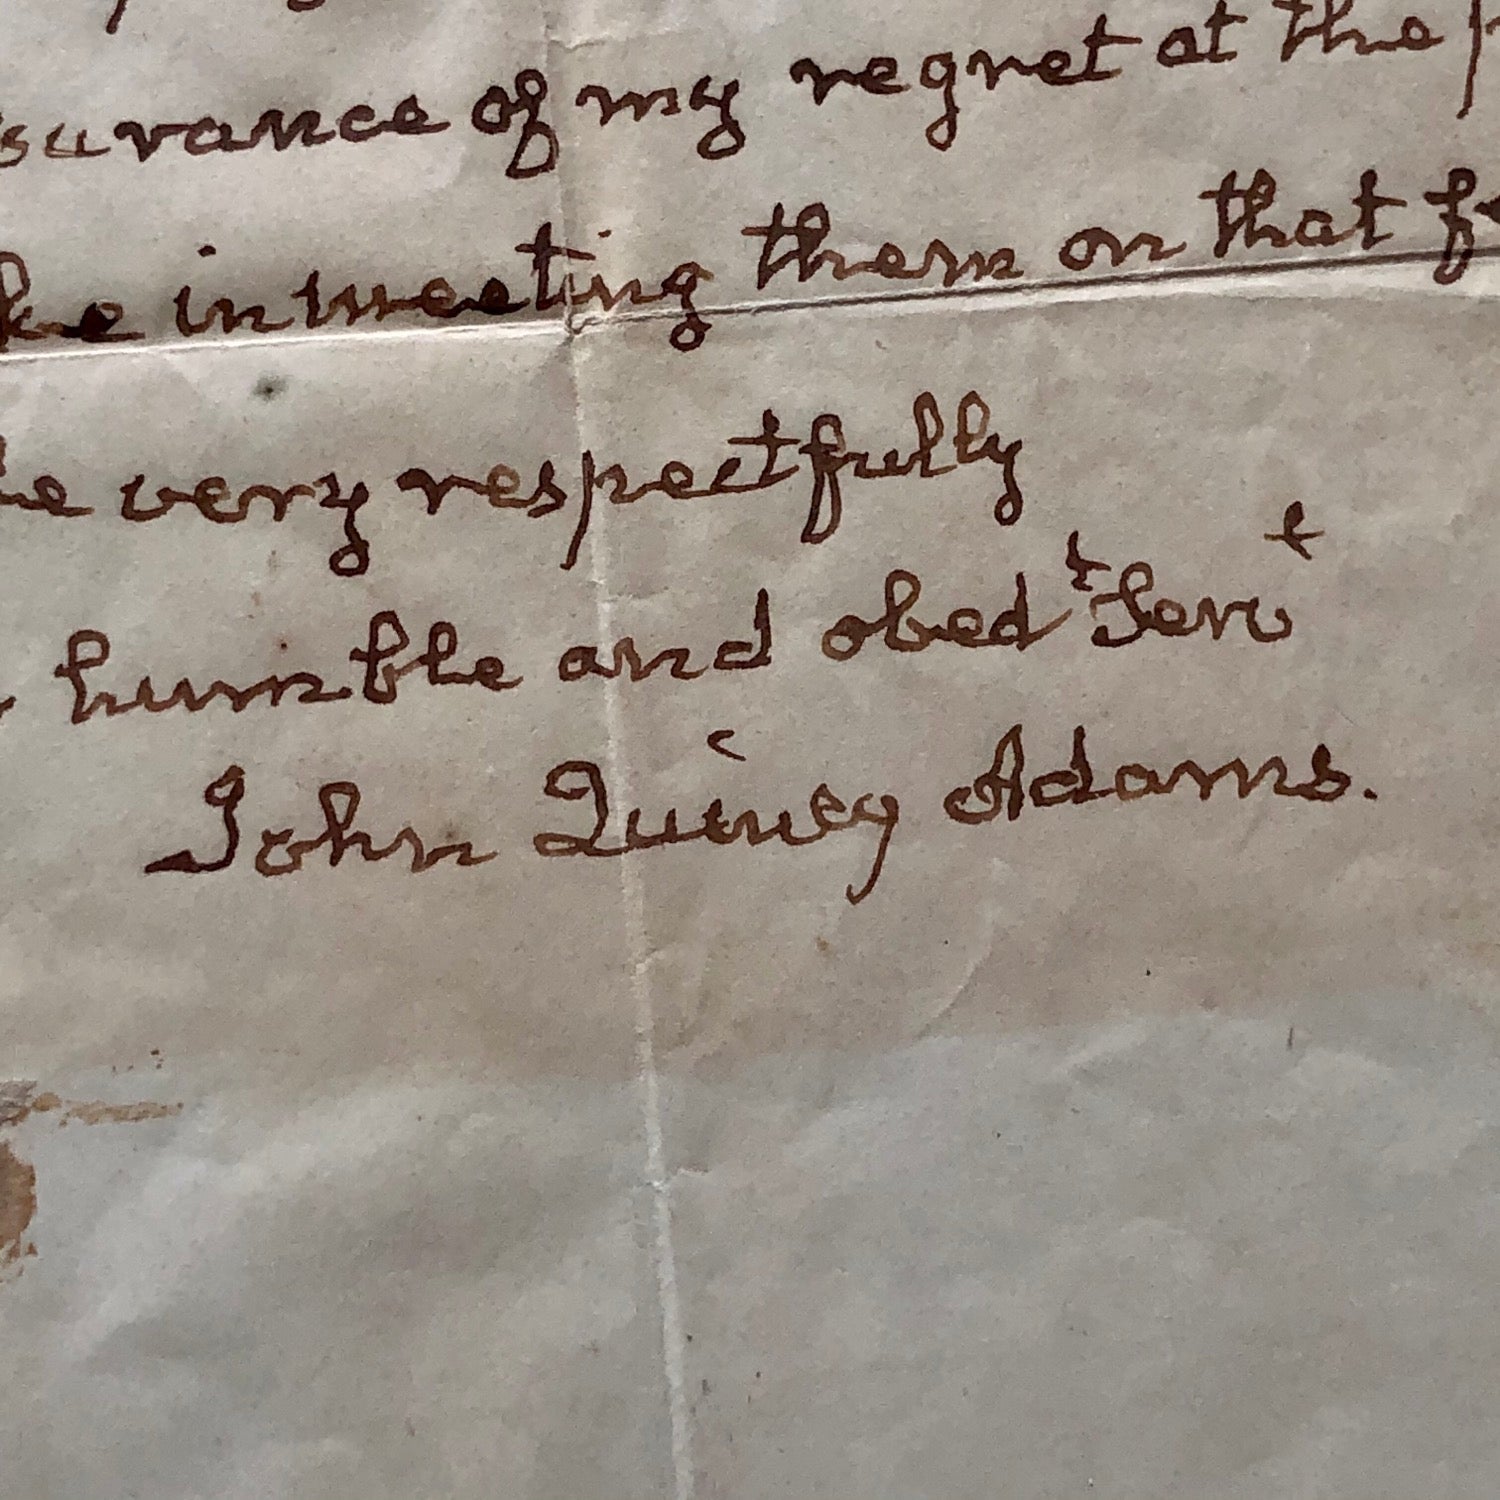 surance of my regret at the p
ke in meeting them on that f
be very respectfully
humble and obedt Servt
John Quincy Adams.